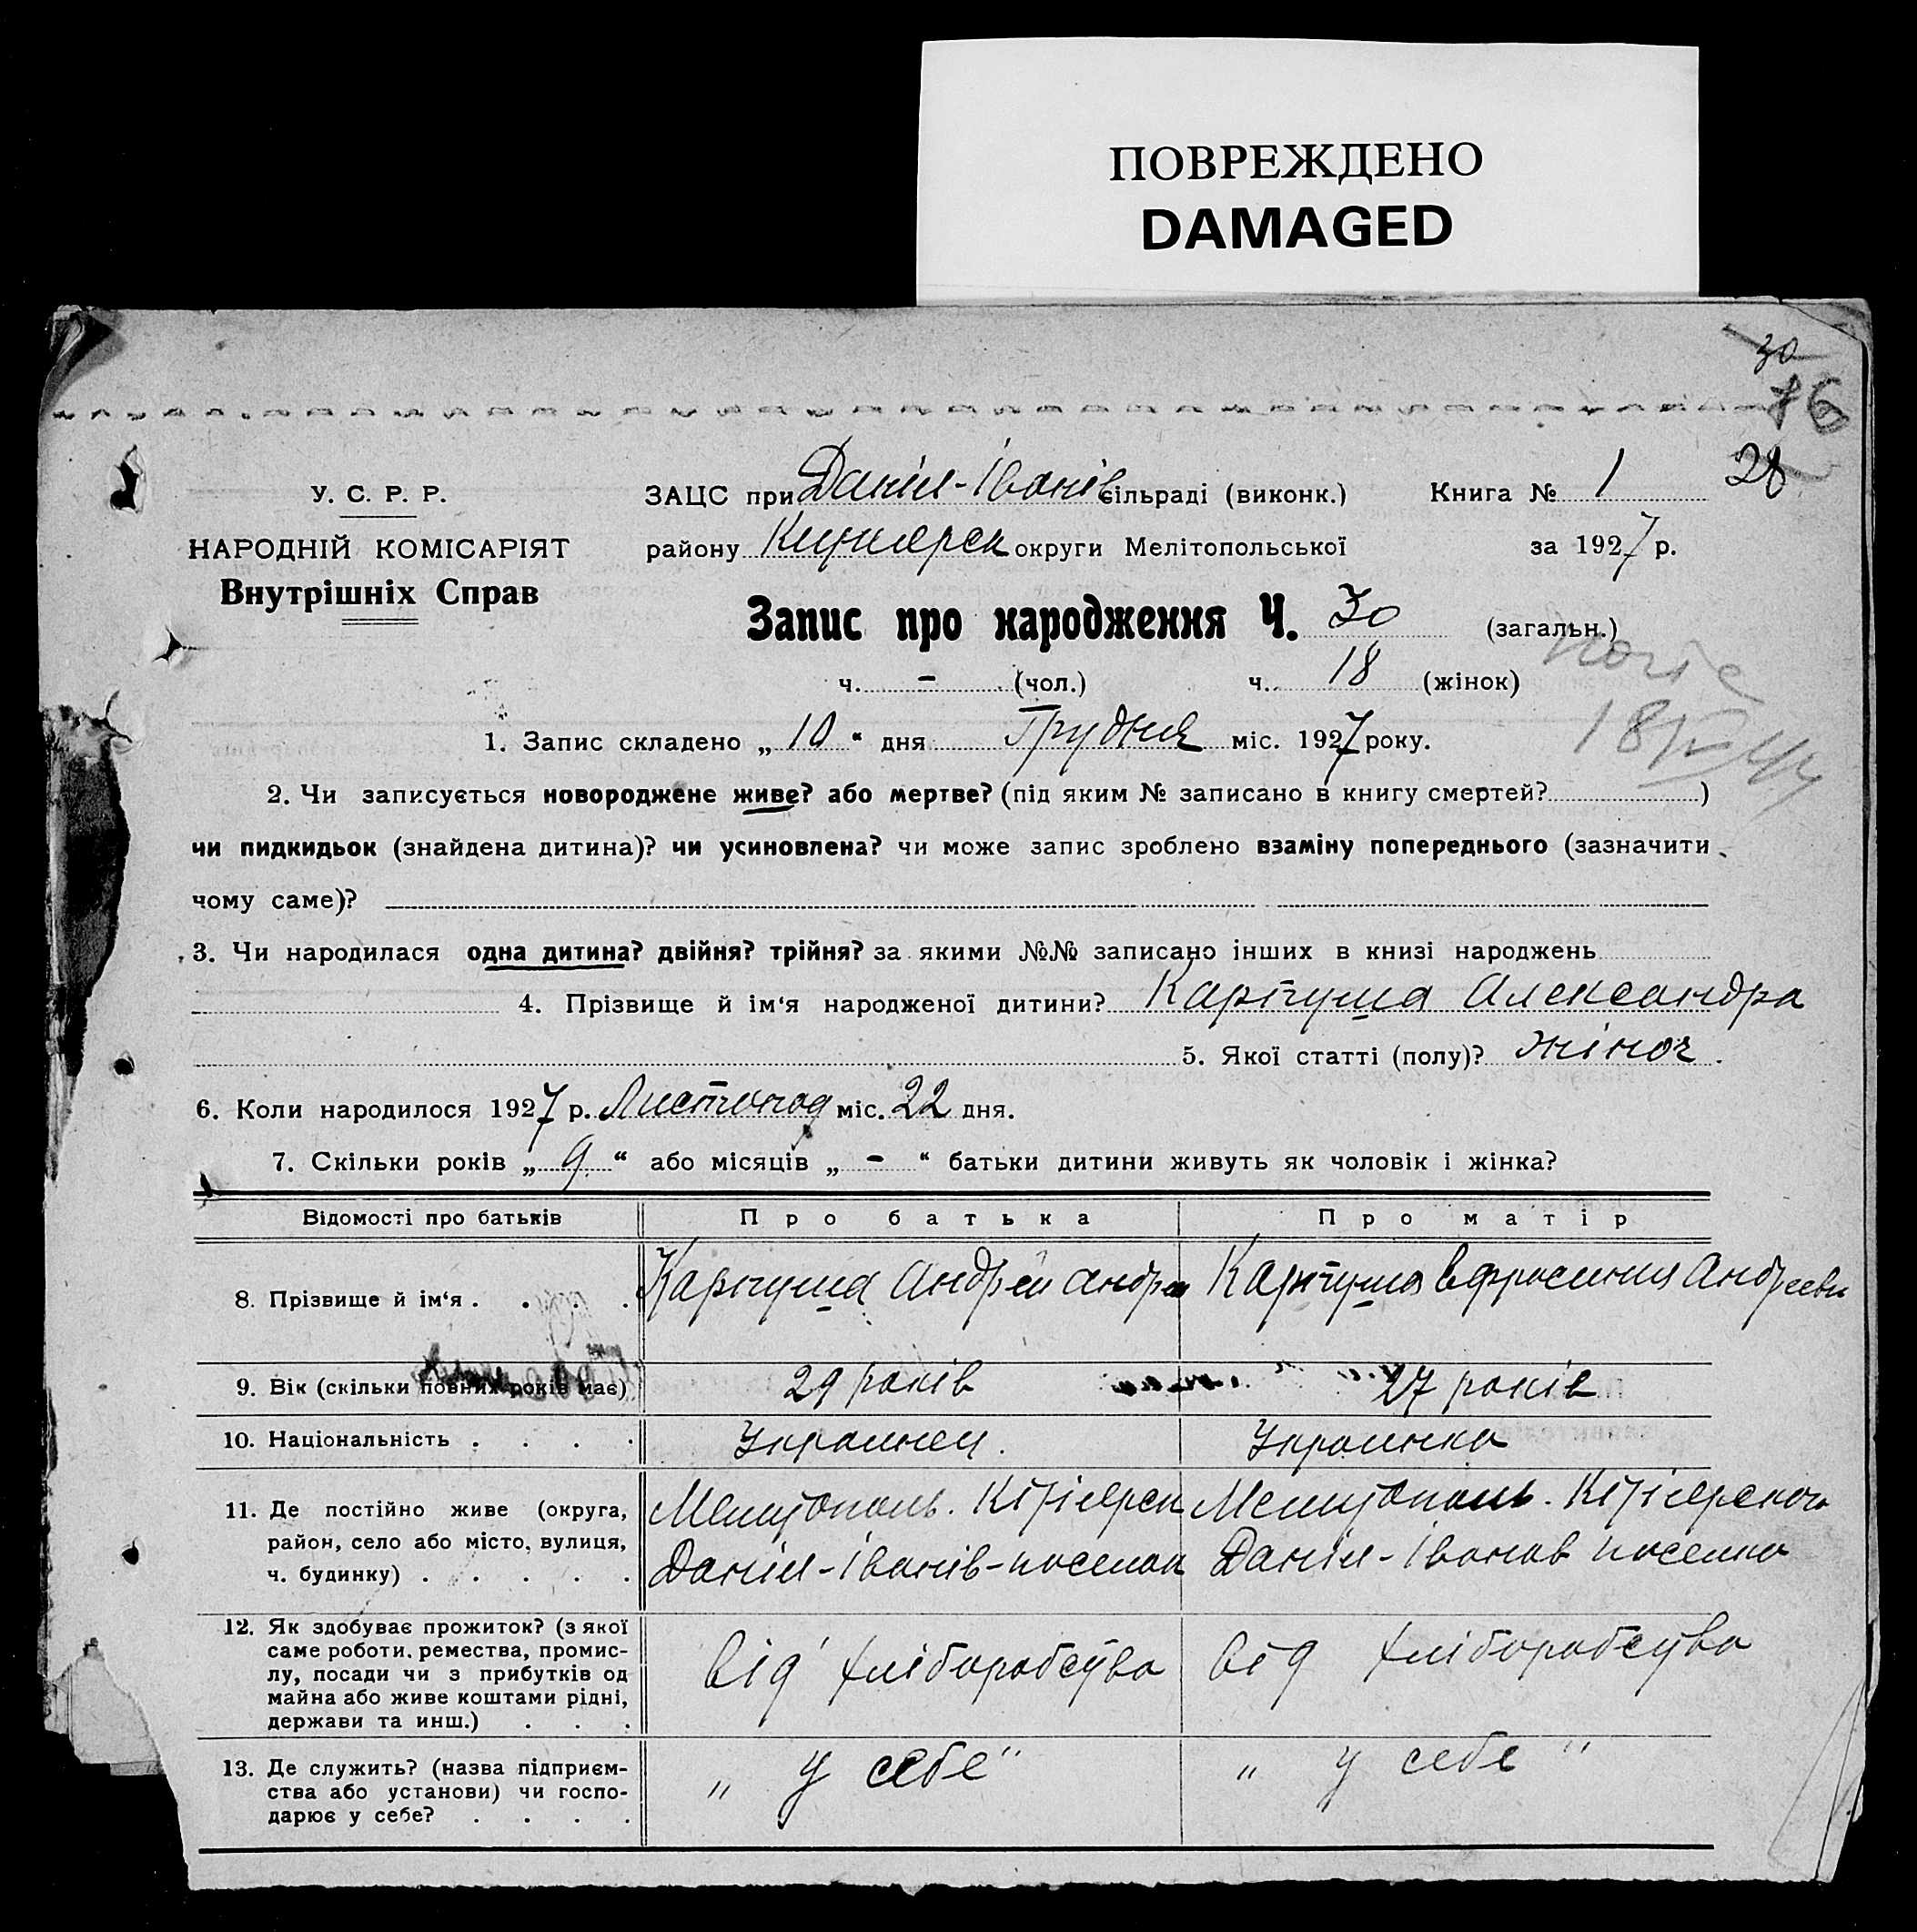 ПОВРЕЖДЕНО
DAMAGED
30
76
28
У. С. Р. Р.
НАРОДНІЙ КОМІСАРІЯТ
Внутрішніх Справ
ЗАЦС при Даніл-Іванів сільраді (виконк.) Книга № 1
району округи Мелітопольської за 1927 р.
Запис про народження Ч. 30 (загальн.)
ч. - (чол.) ч. 18 (жінок)
1. Запис складено „10“ дня Грудня міс. 1927 року.
2. Чи записується новороджене живе? або мертве? (під яким № записано в книгу смертей? )
чи пидкидьок (знайдена дитина)? чи усиновлена? чи може запис зроблено взаміну попереднього (зазначити
чому саме)?
3. Чи народилася одна дитина? двійня? трійня? за якими №№ записано інших в книзі народжень
4. Прізвище й ім‘я народженої дитини? Карпуша Александра
5. Якої статті (полу)? жіноч.
6. Коли народилося 1927 р. Листопад міс. 22 дня.
7. Скільки років „9“ або місяців „-“ батьки дитини живуть як чоловік і жінка?
Відомості про батьків Про батька Про матір
8. Прізвище й ім‘я . . . . Карпуша Андрей Андре Карпуша Ефросиния Андреевн
9. Вік (скільки повних років має) 29 років 27 років
10. Національність . . . . Украинец. Украинка
11. Де постійно живе (округа,
район, село або місто, вулиця,
ч. будинку) . . . . .
Мелитополь.
Даніл-Іванів-поселок
Мелитополь.
Даніл-Іванов поселка
12. Як здобуває прожиток? (з якої
саме роботи, ремества, промис-
лу, посади чи з прибутків од
майна або живе коштами рідні,
держави та инш.) . . .
від хліборобства від хліборобства
13. Де служить? (назва підприєм-
ства або установи) чи госпо-
дарює у себе? . . . .
„ у себе “ „ у себе “